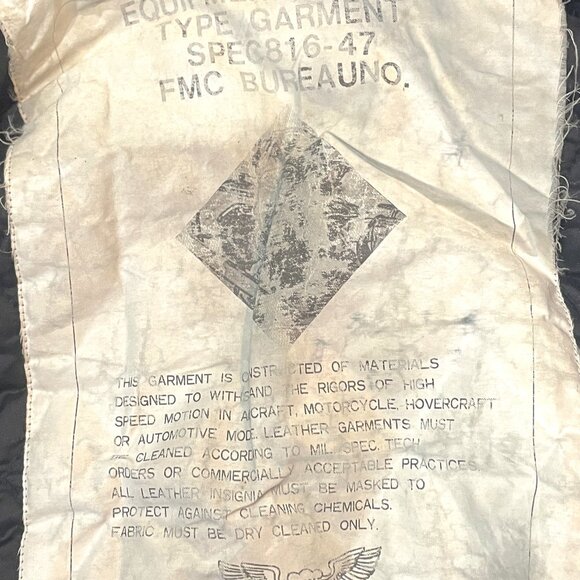 EQUIPMEN
TYPE GARMENT
SPEC816-47
FMC BUREAUNO.
THIS GARMENT IS C NSTRUCTED OF MATERIALS
DESIGNED TO WITHS AND THE RIGORS OF HIGH
SPEED MOTION IN AICRAFT, MOTORCYCLE, HOVERCRAFT
OR AUTOMOTIVE MODE. LEATHER GARMENTS MUST
CLEANED ACCORDING TO MIL. SPEC. TECH.
ORDERS OR COMMERCIALLY ACCEPTABLE PRACTICES.
ALL LEATHER INSIGNIA MUST BE MASKED TO
PROTECT AGAINST CLEANING CHEMICALS.
FABRIC MUST BE DRY CLEANED ONLY.